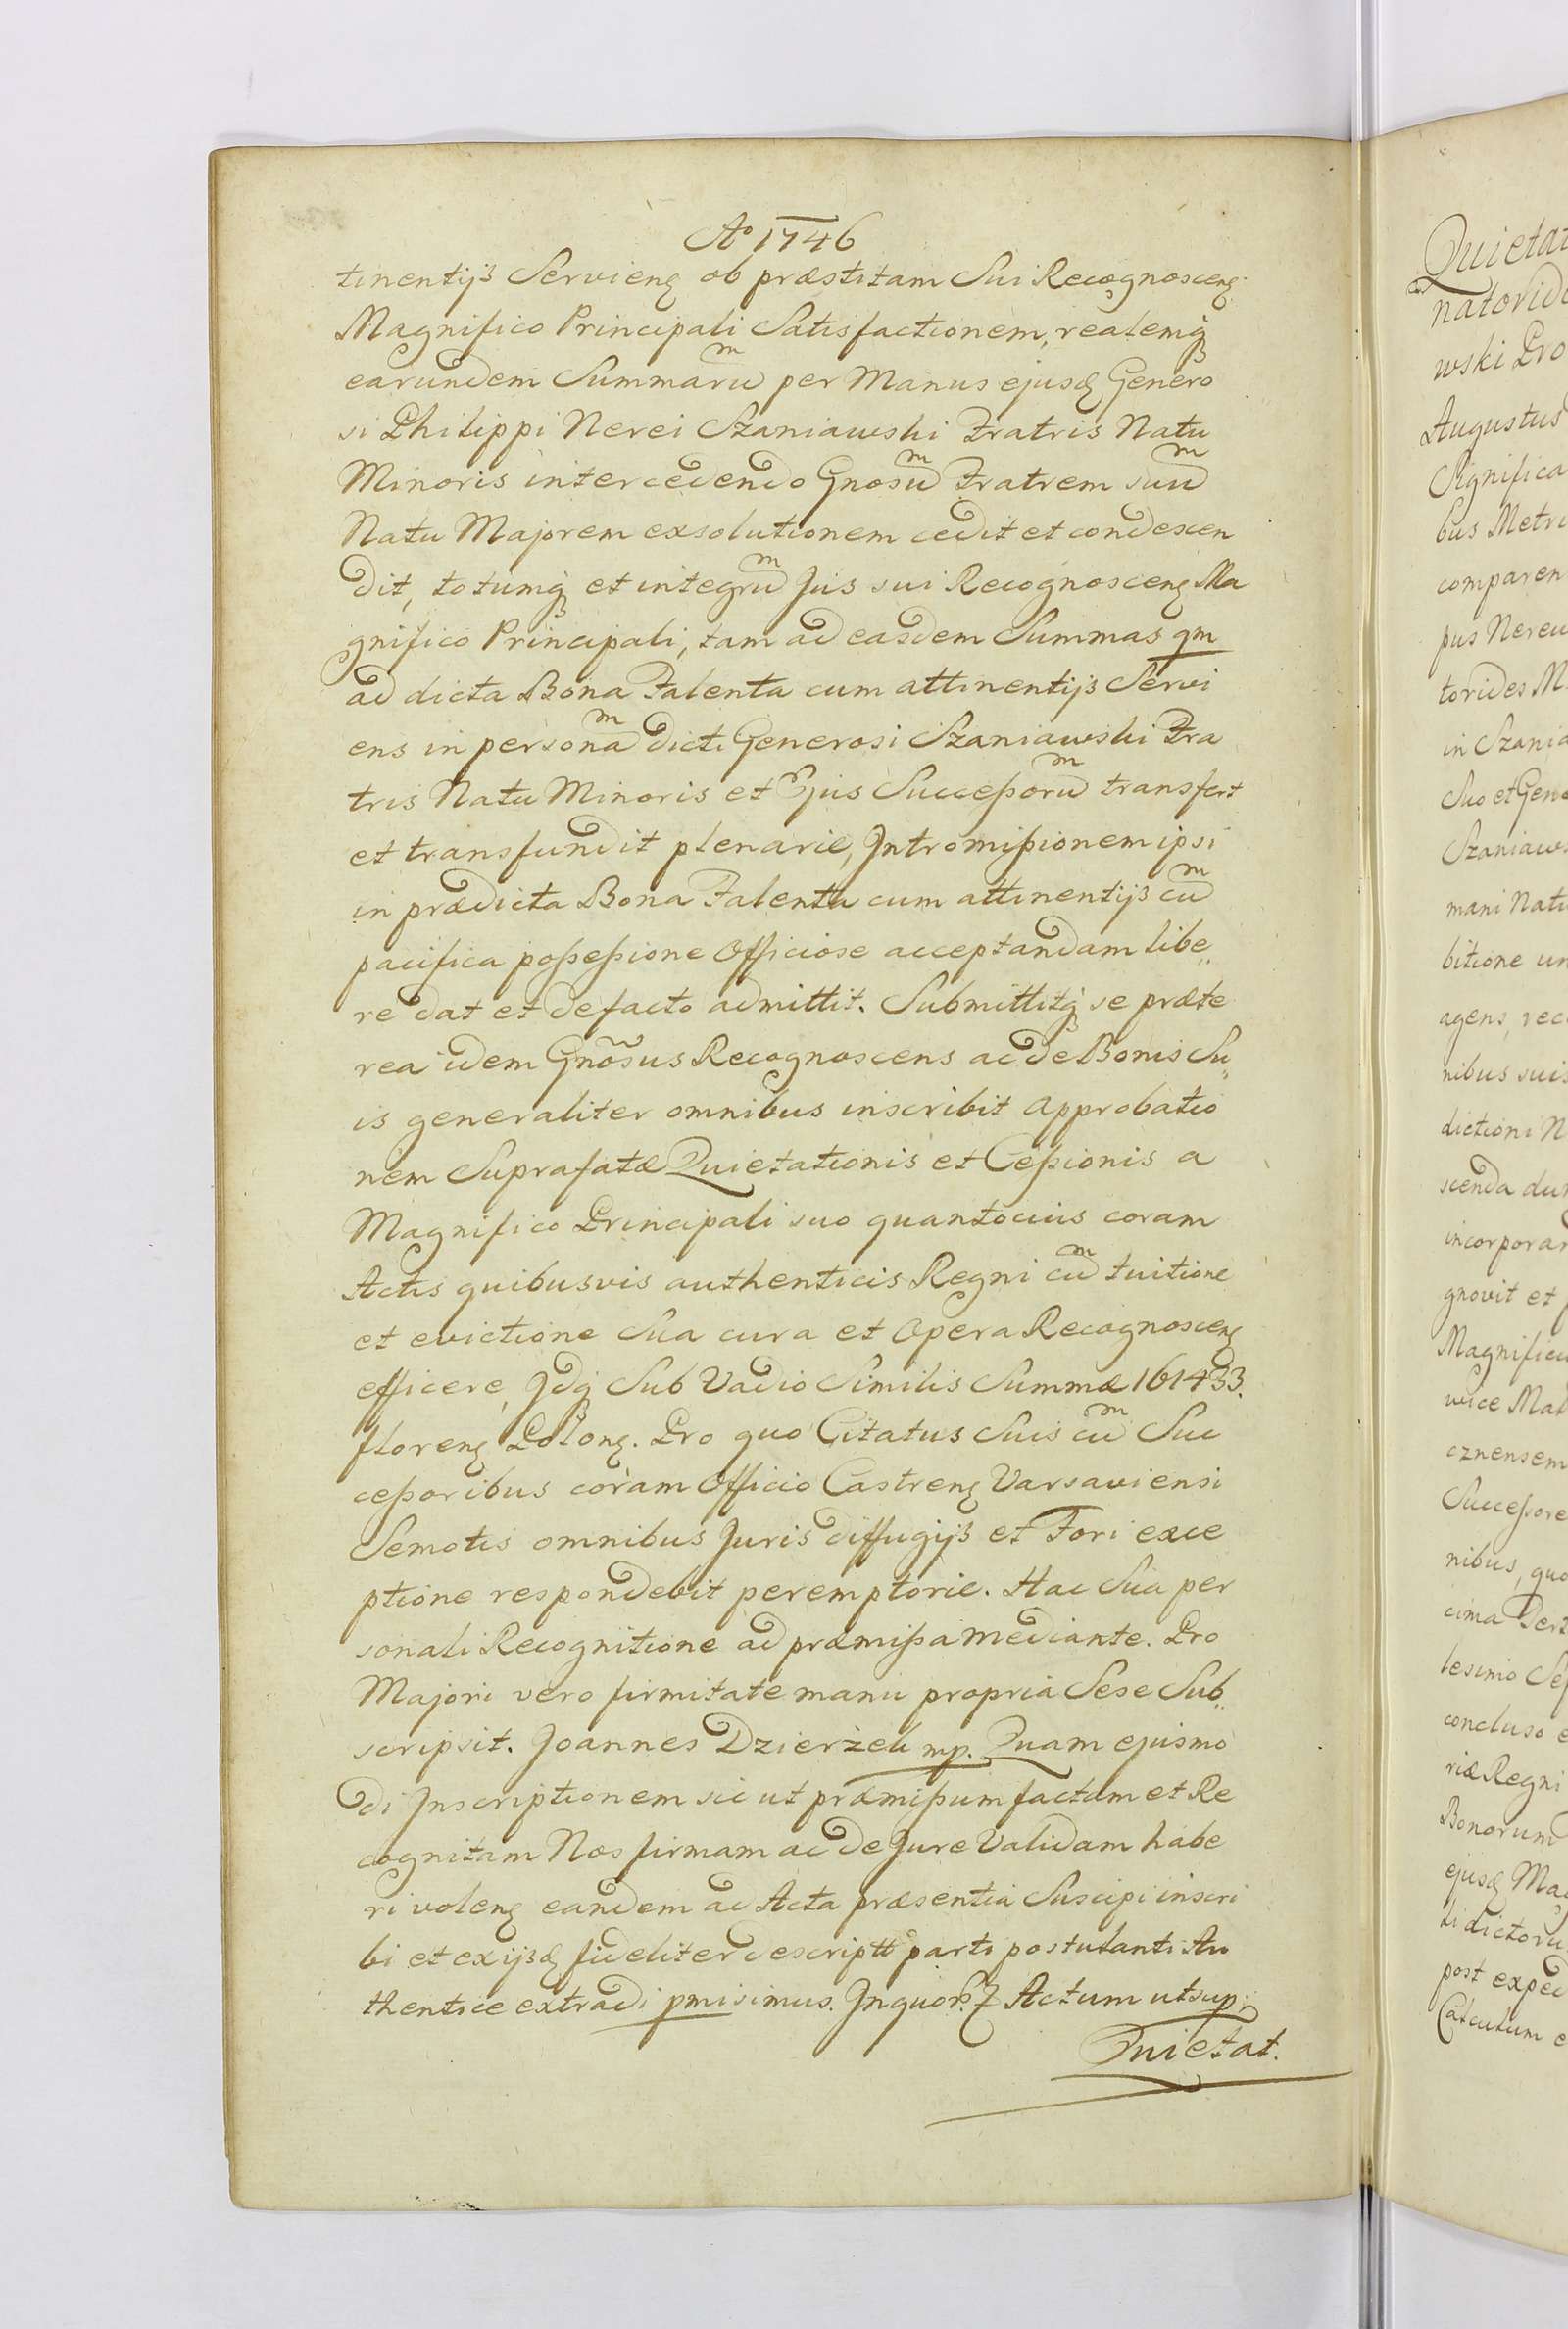 Aº 1746
tinentijs Servienẽ ob præstitam Sui Recognoscenẽ
Magnifico Principali Satisfactionem, realemq́
earundem Summarum per Manus ejusd Genero
si Philippi Nerei Szaniawski Fratris Natu
Minoris intercedendo Gnosum Fratrem suum
Natu Majorem exsolutionem cedit et condescen
dit, totumq́ et integrum Jus sui Recognoscenẽ Ma
gnifico Principali, tam ad easdem Summas qm
ad dicta Bona Falenta cum attinentijs Servi
ens in personam dicti Generosi Szaniawski Fra
tris Natu Minoris et Ejus Successorum transfert
et transfundit plenarie, Intromißionem ipsi
in prædicta Bona Falenta cum attinentijs cum
pacifica poßeßione Officiose acceptandam libe„
re dat et defacto admittit. Submittitq́ se præte
rea idem Gnõsus Recognoscens ac de Bonis Su„
is generaliter omnibus inscribit approbatio
nem Suprafatæ Quietationis et Ceßionis a
Magnifico Principali suo quantocius coram
Actis quibusvis authenticis Regni cum tuitione
et evictione Sua cura et Opera Recognoscenẽ
efficere, Idq́ Sub Vadio Similis Summæ 161433.
florenẽ Polonẽ. Pro quo Citatus Suis cum Suc
ceßoribus coram Officio Castrenẽ Varsaviensi
Semotis omnibus Juris diffugijs et Fori exce
ptione respondebit peremptorie. Hac Sua per
sonali Recognitione ad præmißa mediante. Pro
Majori vero firmitate manu propria Sese Sub„
scripsit. Joannes Dzierżek mp. Quam ejusmo
di Inscriptionem sic ut præmißum factam et Re
cognitam Nos firmam ac de Jure Validam habe
ri volenẽ eandem ad Acta præsentia Suscipi inscri
bi et ex ijsd fideliter descriptt parti postulanti Au
thentice extradi pmisimus. Inquor. Actum ut sup.
Quietat.
Quietat
natorid
wski Pro
Augustus
Significa
bus Metri
comparen
pus Nereu
torides M
in Szania
Suo et Gen
Szaniaws
mani Natu
bitione un
agens, rec
nibus suis
dictioni N
scenda du
incorporar
gnovit et
Magnificu
wice Mat
cznensem
Succeßore
nibus, quo
cima Tert
lesimo Se
concluso e
riæ Regni
Bonorum
ejusd Mag
ti dictoru
post exped
Calculum e